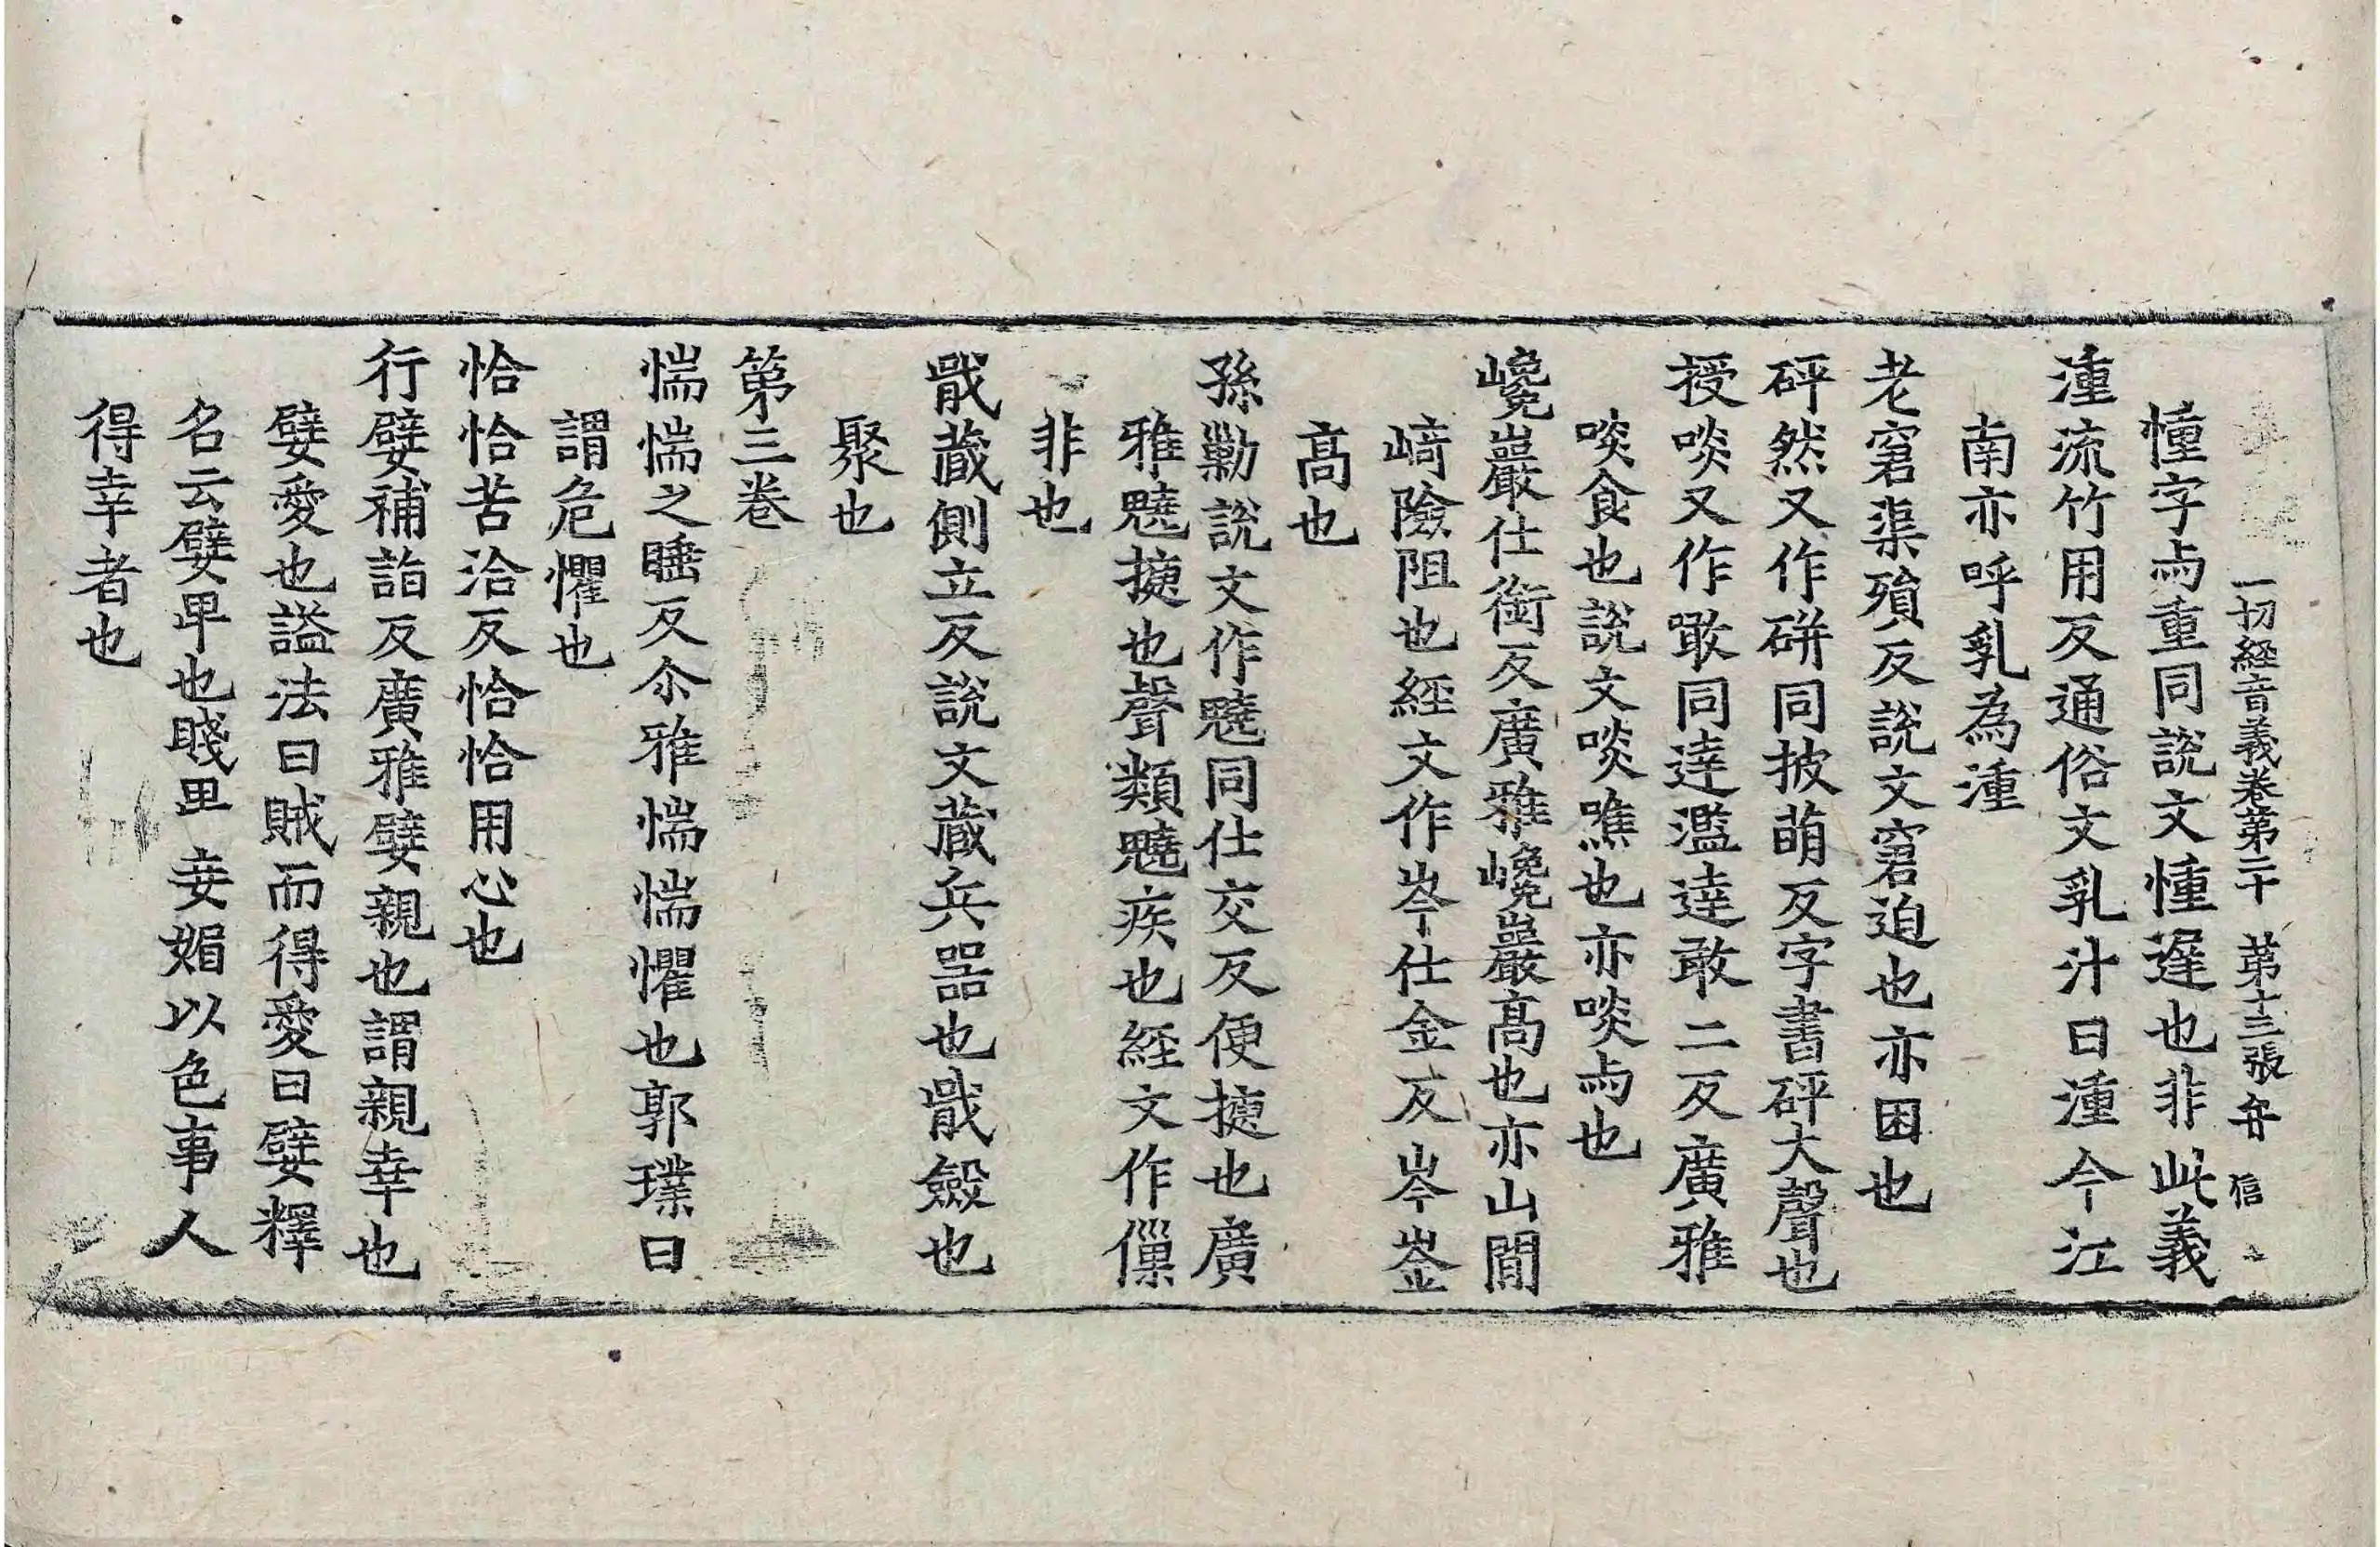 一切経音義卷第二十　第十三張　弁　信
憧字与重同說文憧遟也非此義
湩流竹用反通俗文乳汁曰湩今江
南亦呼乳為湩
老窘渠殞反說文窘迫也亦困也
砰然又作硑同披萌反字書砰大聲也
授啖又作噉同達濫達敢二反廣雅
啖食也說文啖噍也亦啖与也
巉巖仕銜反廣雅巉巖高也亦山間
﨑險阻也経文作岑仕金反岑崟
髙也
孫勦說文作魑同仕交反便揵也廣
雅魑揵也聲類魑疾也経文作僳
非也
戢蔵側立反說文蔵兵器也戢斂也
聚也
第三卷
惴惴之睡反尒雅惴惴懼也郭璞曰
謂危懼也
恰恰苦洽反恰恰用心也
行嬖補詣反廣雅嬖親也謂親幸也
嬖愛也謚法曰賊而得愛曰嬖釋
名云嬖卑也賤里妾媚以色事人
得幸者也